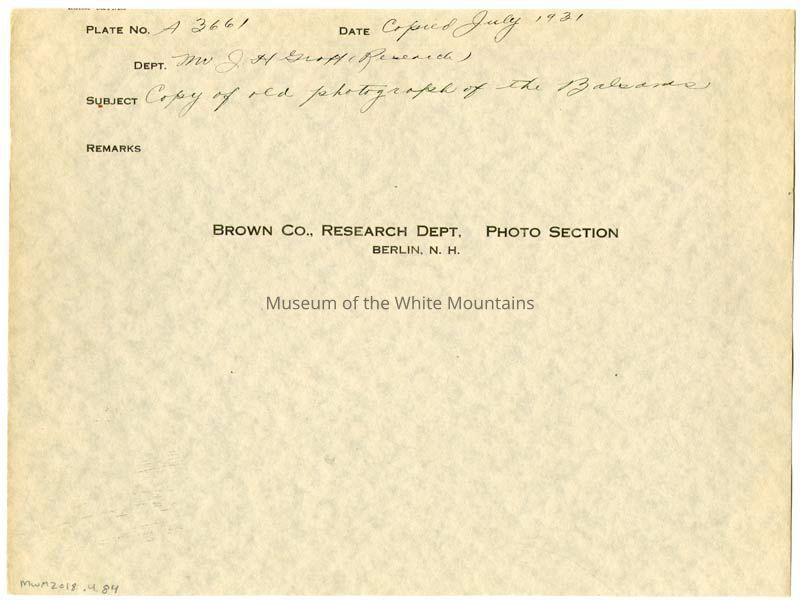 PLATE No. A 3661 DATE Copied July 1931
DEPT. Mr J. H Graff (Research)
SUBJECT Copy of old photograph of the Balsams
REMARKS
BROWN Co., RESEARCH DEPT. PHOTO SECTION
BERLIN, N. H.
Museum of the White Mountains
MWM2018.4.84